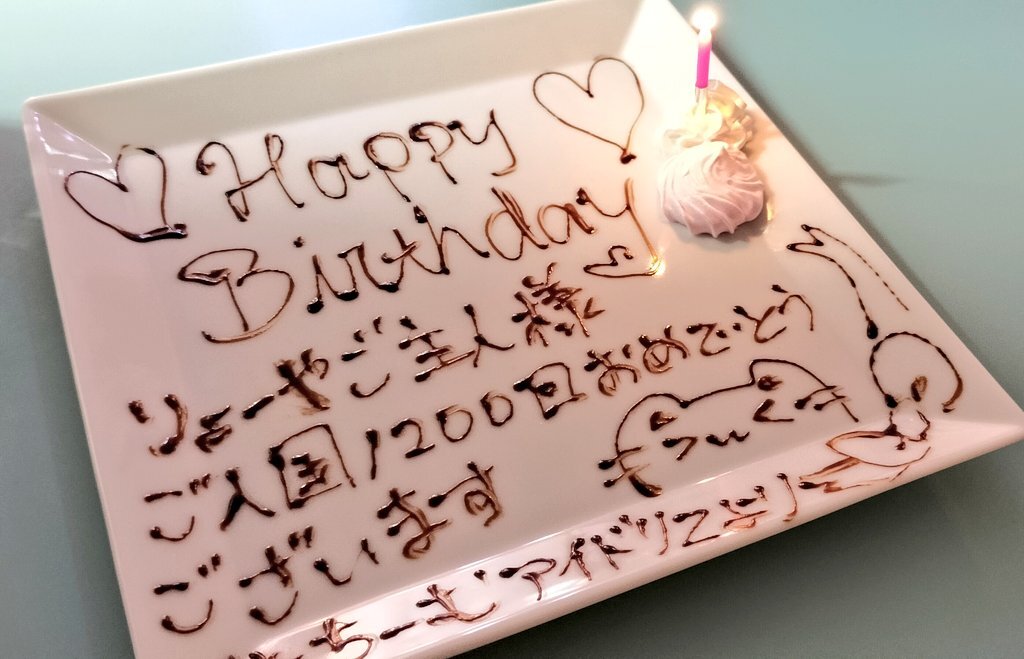 Happy
Birthday
りょーやご主人様
ご入国1200回おめでとう
ございます
ちーむアイドリフとり